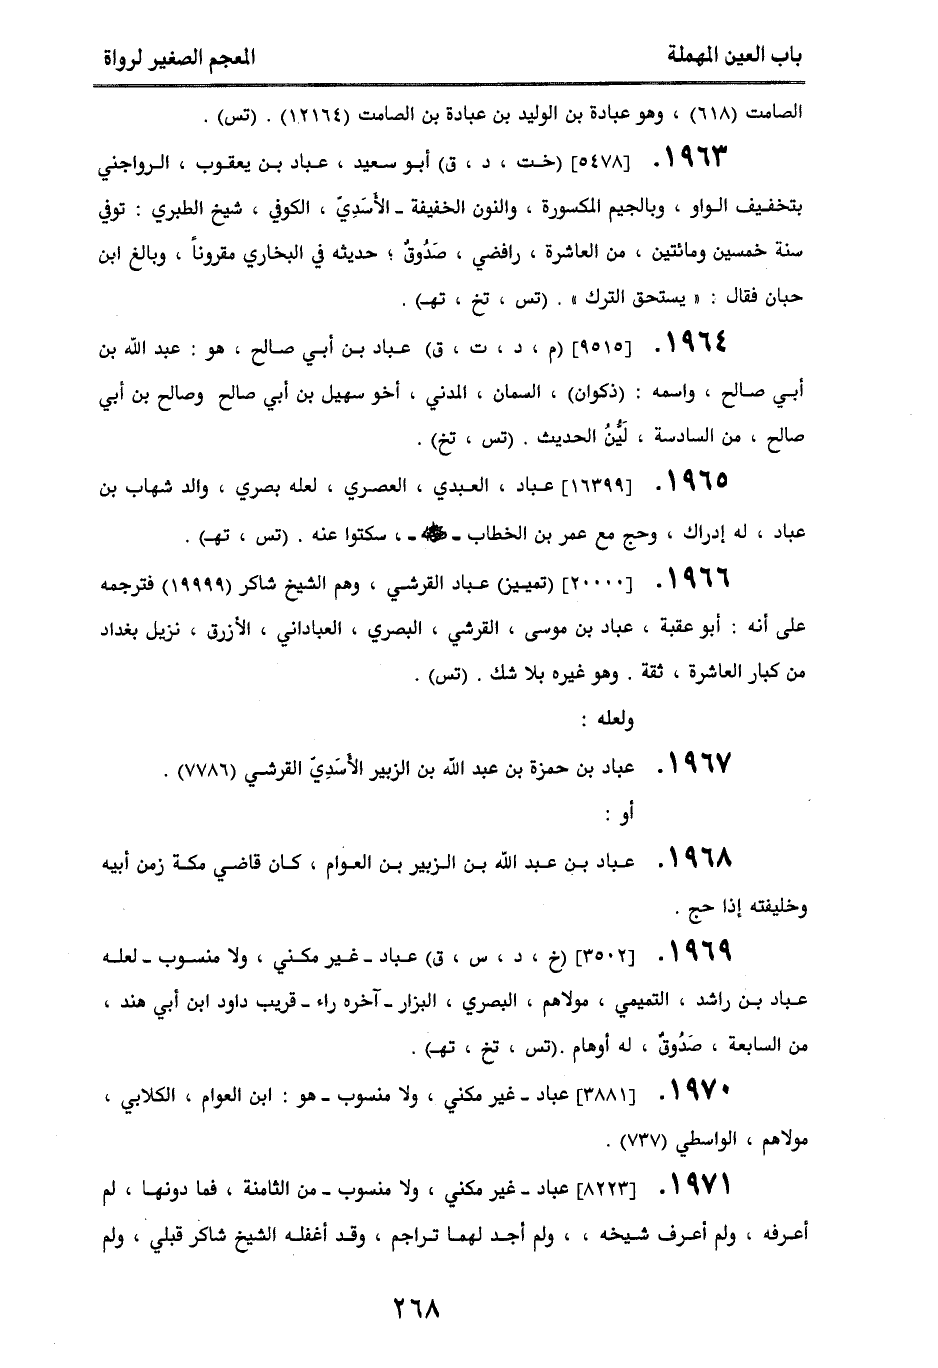 باب العين المهملة
المعجم الصغير لرواة
الصامت (٦١٨) ، وهو عبادة بن الوليد بن عبادة بن الصامت (١٢١٦٤) . (تس) .
١٩٦٣. [٥٤٧٨] (خت ، د ، ق) أبو سعيد ، عباد بن يعقوب ، الرواجني
بتخفيف الواو ، وبالجيم المكسورة ، والنون الخفيفة ـ الأَسَدِيّ ، الكوفي ، شيخ الطبري : توفي
سنة خمسين ومائتين ، من العاشرة ، رافضي ، صَدُوقٌ ؛ حديثه في البخاري مقروناً ، وبالغ ابن
حبان فقال : « يستحق الترك » . (تس ، تخ ، تهـ) .
١٩٦٤. [٩٥١٥] (م ، د ، ت ، ق) عباد بن أبي صالح ، هو : عبد الله بن
أبي صالح ، واسمه : (ذكوان) ، السمان ، المدني ، أخو سهيل بن أبي صالح وصالح بن أبي
صالح ، من السادسة ، لَيُّنُ الحديث . (تس ، تخ) .
١٩٦٥. [١٦٣٩٩] عباد ، العبدي ، العصري ، لعله بصري ، والد شهاب بن
عباد ، له إدراك ، وحج مع عمر بن الخطاب ـ ﷺ ـ ، سكتوا عنه . (تس ، تهـ) .
١٩٦٦. [٢٠٠٠٠] (تمييز) عباد القرشي ، وهم الشيخ شاكر (١٩٩٩٩) فترجمه
على أنه : أبو عقبة ، عباد بن موسى ، القرشي ، البصري ، العباداني ، الأزرق ، نزيل بغداد
من كبار العاشرة ، ثقة . وهو غيره بلا شك . (تس) .
ولعله :
١٩٦٧. عباد بن حمزة بن عبد الله بن الزبير الأَسَدِيّ القرشي (٧٧٨٦) .
أو :
١٩٦٨. عباد بن عبد الله بن الزبير بن العوام ، كان قاضي مكة زمن أبيه
وخليفته إذا حج .
١٩٦٩. [٣٥٠٢] (خ ، د ، س ، ق) عباد ـ غير مكني ، ولا منسوب ـ لعله
عباد بن راشد ، التميمي ، مولاهم ، البصري ، البزار ـ آخره راء ـ قريب داود ابن أبي هند ،
من السابعة ، صَدُوقٌ ، له أوهام .(تس ، تخ ، تهـ) .
١٩٧٠. [٣٨٨١] عباد ـ غير مكني ، ولا منسوب ـ هو : ابن العوام ، الكلابي ،
مولاهم ، الواسطي (٧٣٧) .
١٩٧١. [٨٢٢٣] عباد ـ غير مكني ، ولا منسوب ـ من الثامنة ، فما دونها ، لم
أعرفه ، ولم أعرف شيخه ، ، ولم أجد لهما تراجم ، وقد أغفله الشيخ شاكر قبلي ، ولم
٢٦٨